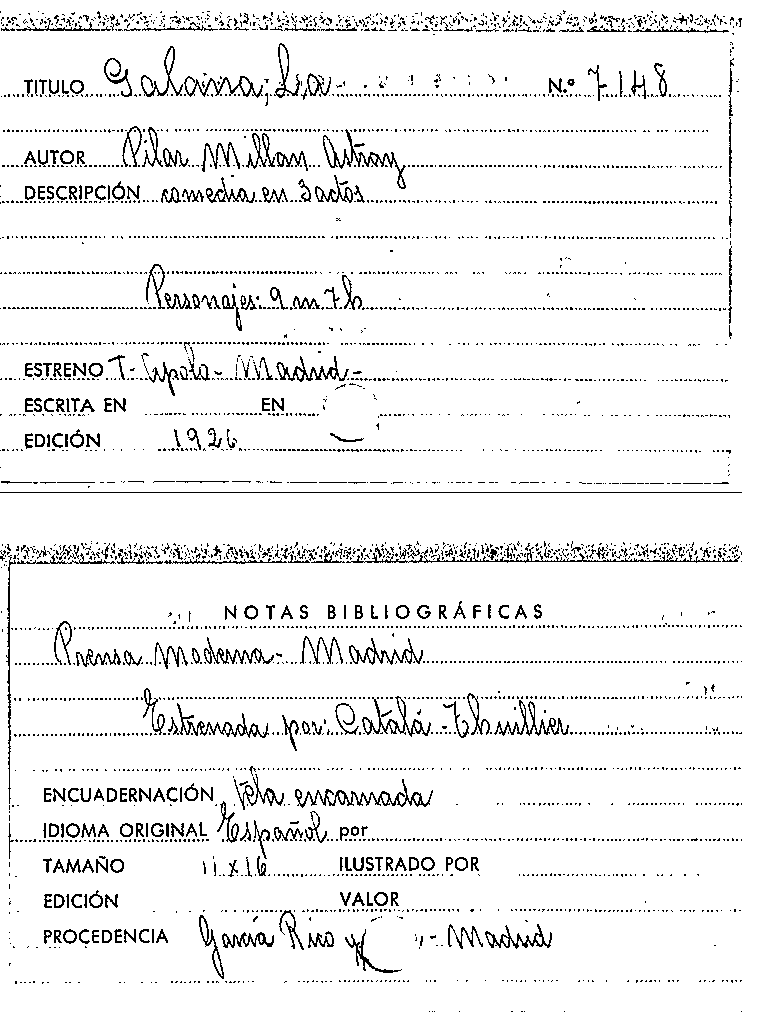 TITULO Galana, La N.º 7148
AUTOR Pilar Millan Astray
DESCRIPCIÓN comedia en 3 actos
Personajes: 9 m 7 h
ESTRENO T- Apolo- Madrid-
ESCRITA EN EN
EDICIÓN 1926
NOTAS BIBLIOGRÁFICAS
Prensa Moderna- Madrid
Estrenada por: Catalá-Thuillier
ENCUADERNACIÓN Tela encarnada
IDIOMA ORIGINAL Español por
TAMAÑO 11 x 16 ILUSTRADO POR
EDICIÓN VALOR
PROCEDENCIA García Rico y - Madrid